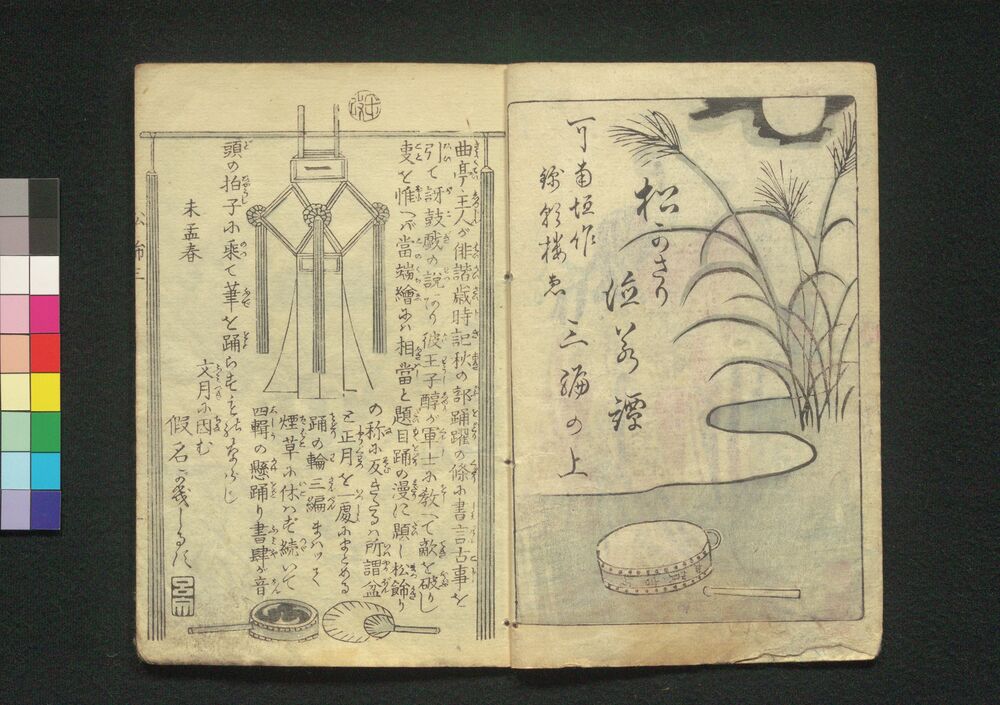 可南垣作
松かさり
三編の上
曲亭主人が俳諧歳時記秋の部踊躍の條に書言古事を
引て訝鼓戯の説あり彼王子醇が軍士に教へて敵を破りし
㕝を惟へば當端繪には相當と題目踊の漫に題し松飾り
の称に反きたるは所謂盆
と正月を一處にまとめる
踊の輪三編まはつて
煙草に休はず続いて
四輯の懸踊り書肆が音
頭の拍子に乗て筆を踊
未孟春
文月に因む
假名
一
松飾三